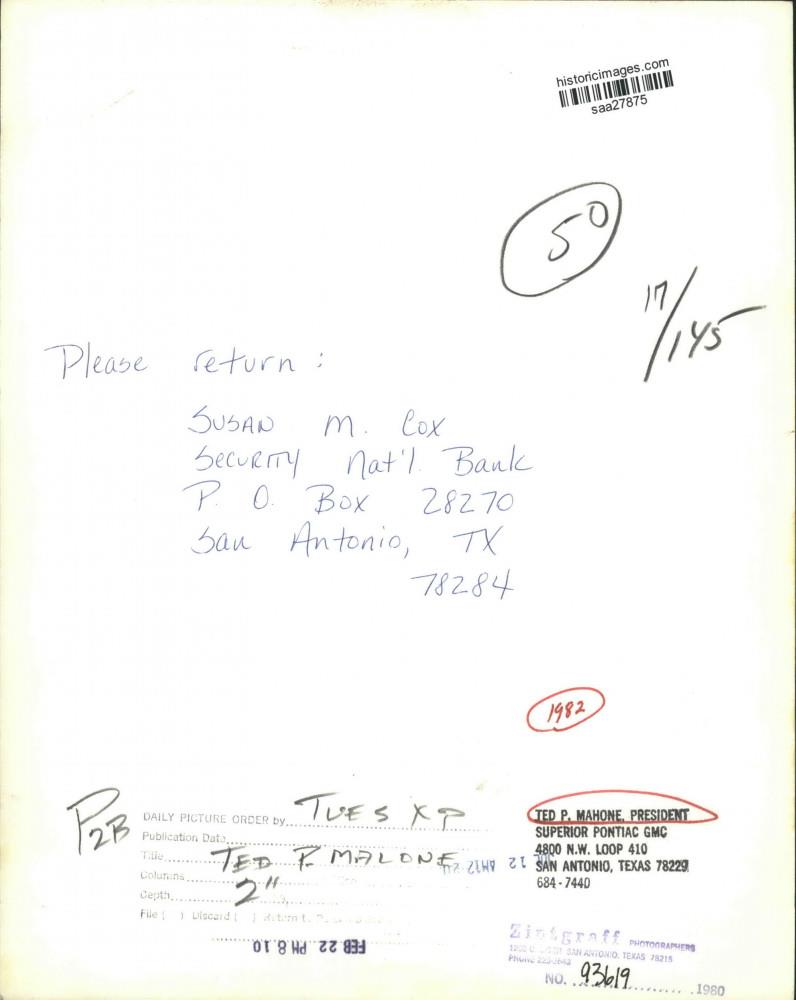 historicimages.com
saa27875
50
17/145
Please return:
SUSAN M. Cox
SECURITY Nat'l. Bank
P. O. Box 28270
San Antonio, TX
78284
1982
P2B
DAILY PICTURE ORDER by TUES XP
Publication Date
Title TED P. MALONE
Columns 2"
Depth
File ( ) Discard ( ) Return t
FEB 22 PM 8.10
12 AM12
TED P. MAHONE, PRESIDENT
SUPERIOR PONTIAC GMC
4800 N.W. LOOP 410
SAN ANTONIO, TEXAS 78229
684-7440
Zintgraff PHOTOGRAPHERS
SAN ANTONIO, TEXAS 78215
NO. 93619 1980